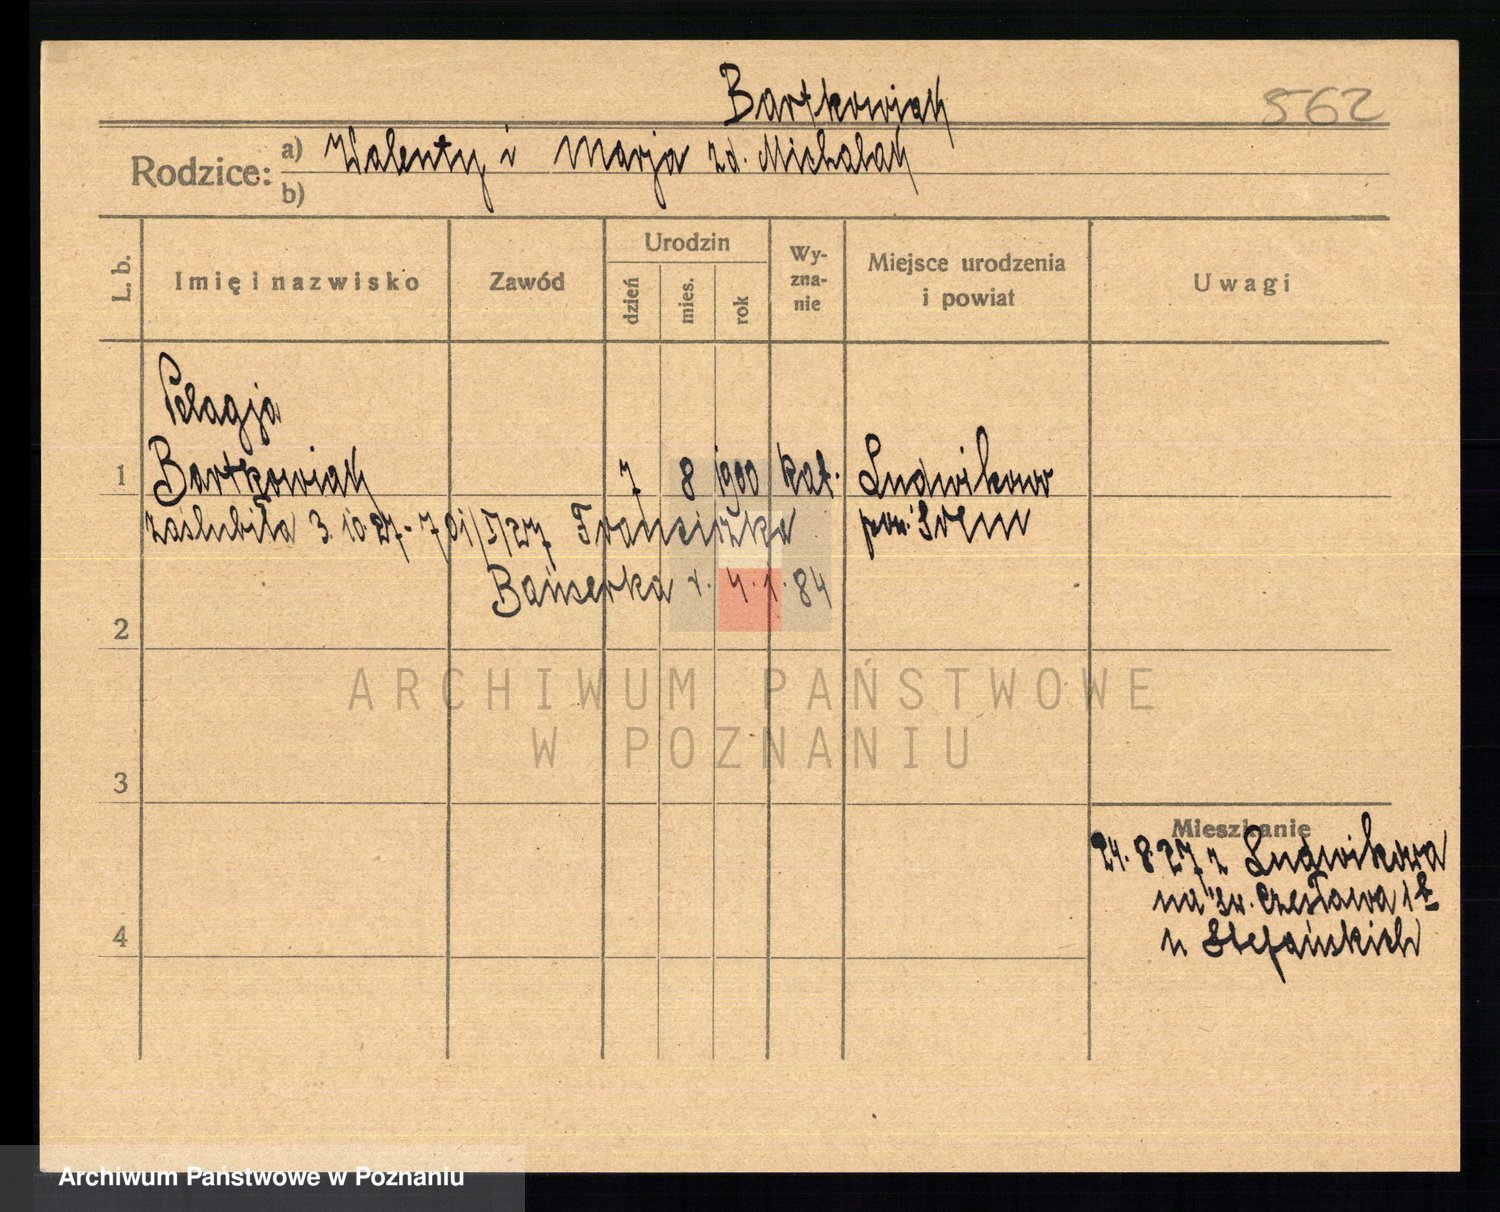 Bartkowiak
562
Rodzice: a) Walenty i Marja zd. Michalak
b)
L. b. Imię i nazwisko Zawód Urodzin dzień mies. rok Wy-zna-nie Miejsce urodzenia i powiat Uwagi
Pelagja
1 Bartkowiak 7 8 1900 kat. Ludwikowo
zaslubiła 3. 10. 27 - 701/I/27 Franciszka pow. Śrem
4. 1. 84
2
ARCHIWUM PAŃSTWOWE
W POZNANIU
3
Mieszkanie
24. 8. 27 z Ludwikowa
na św. Czesława
4 u Stefańskich
Archiwum Państwowe w Poznaniu